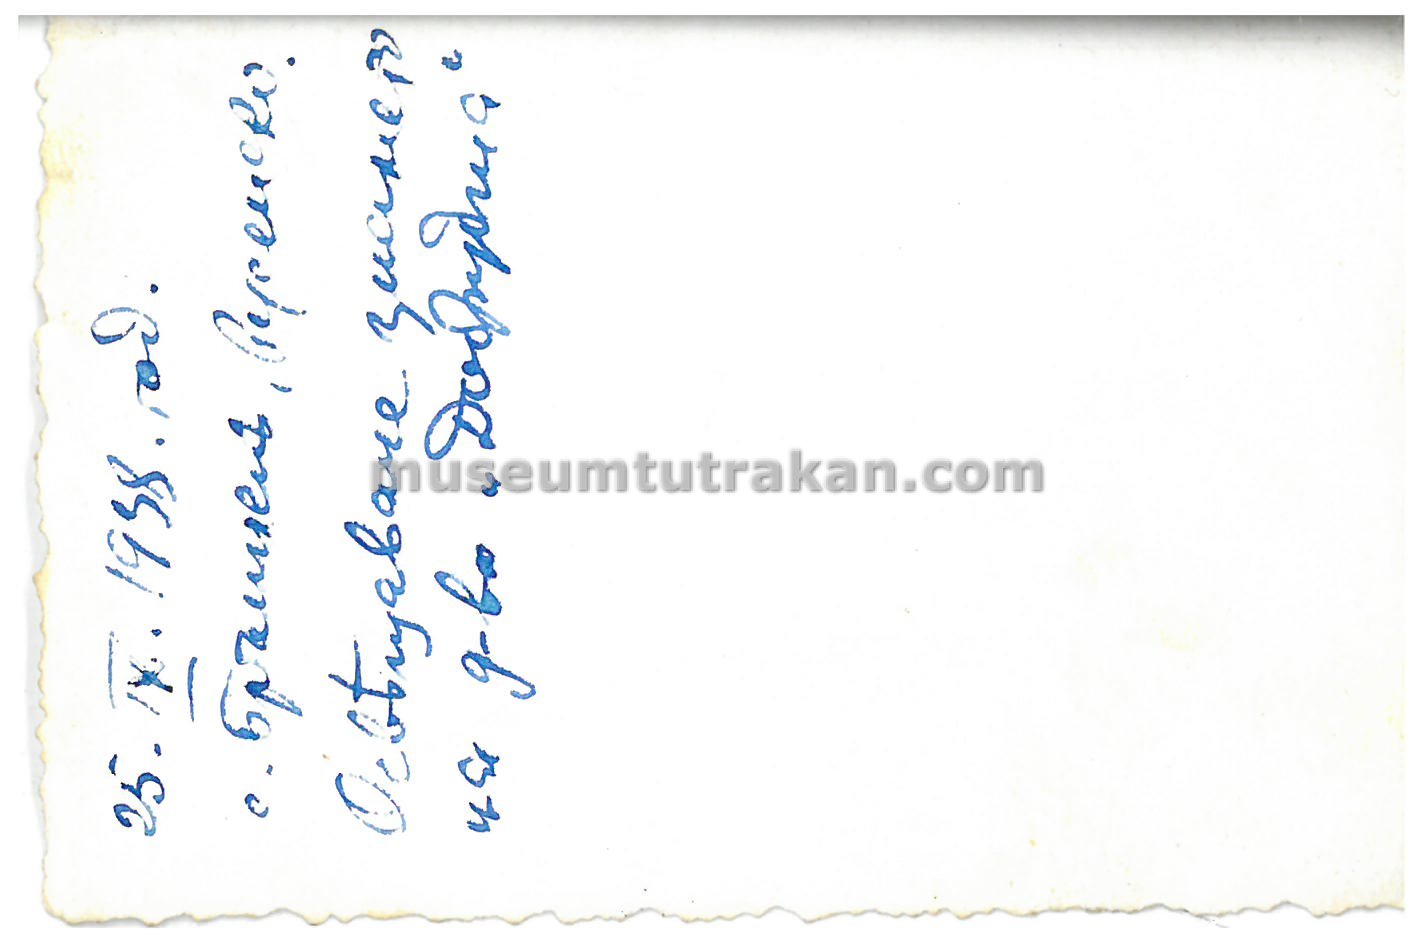 25. IX. 1938. год.
с. Бръшленъ, Русенско.
Освѣщаване знамето
на д-во „Добруджа“
museumtutrakan.com